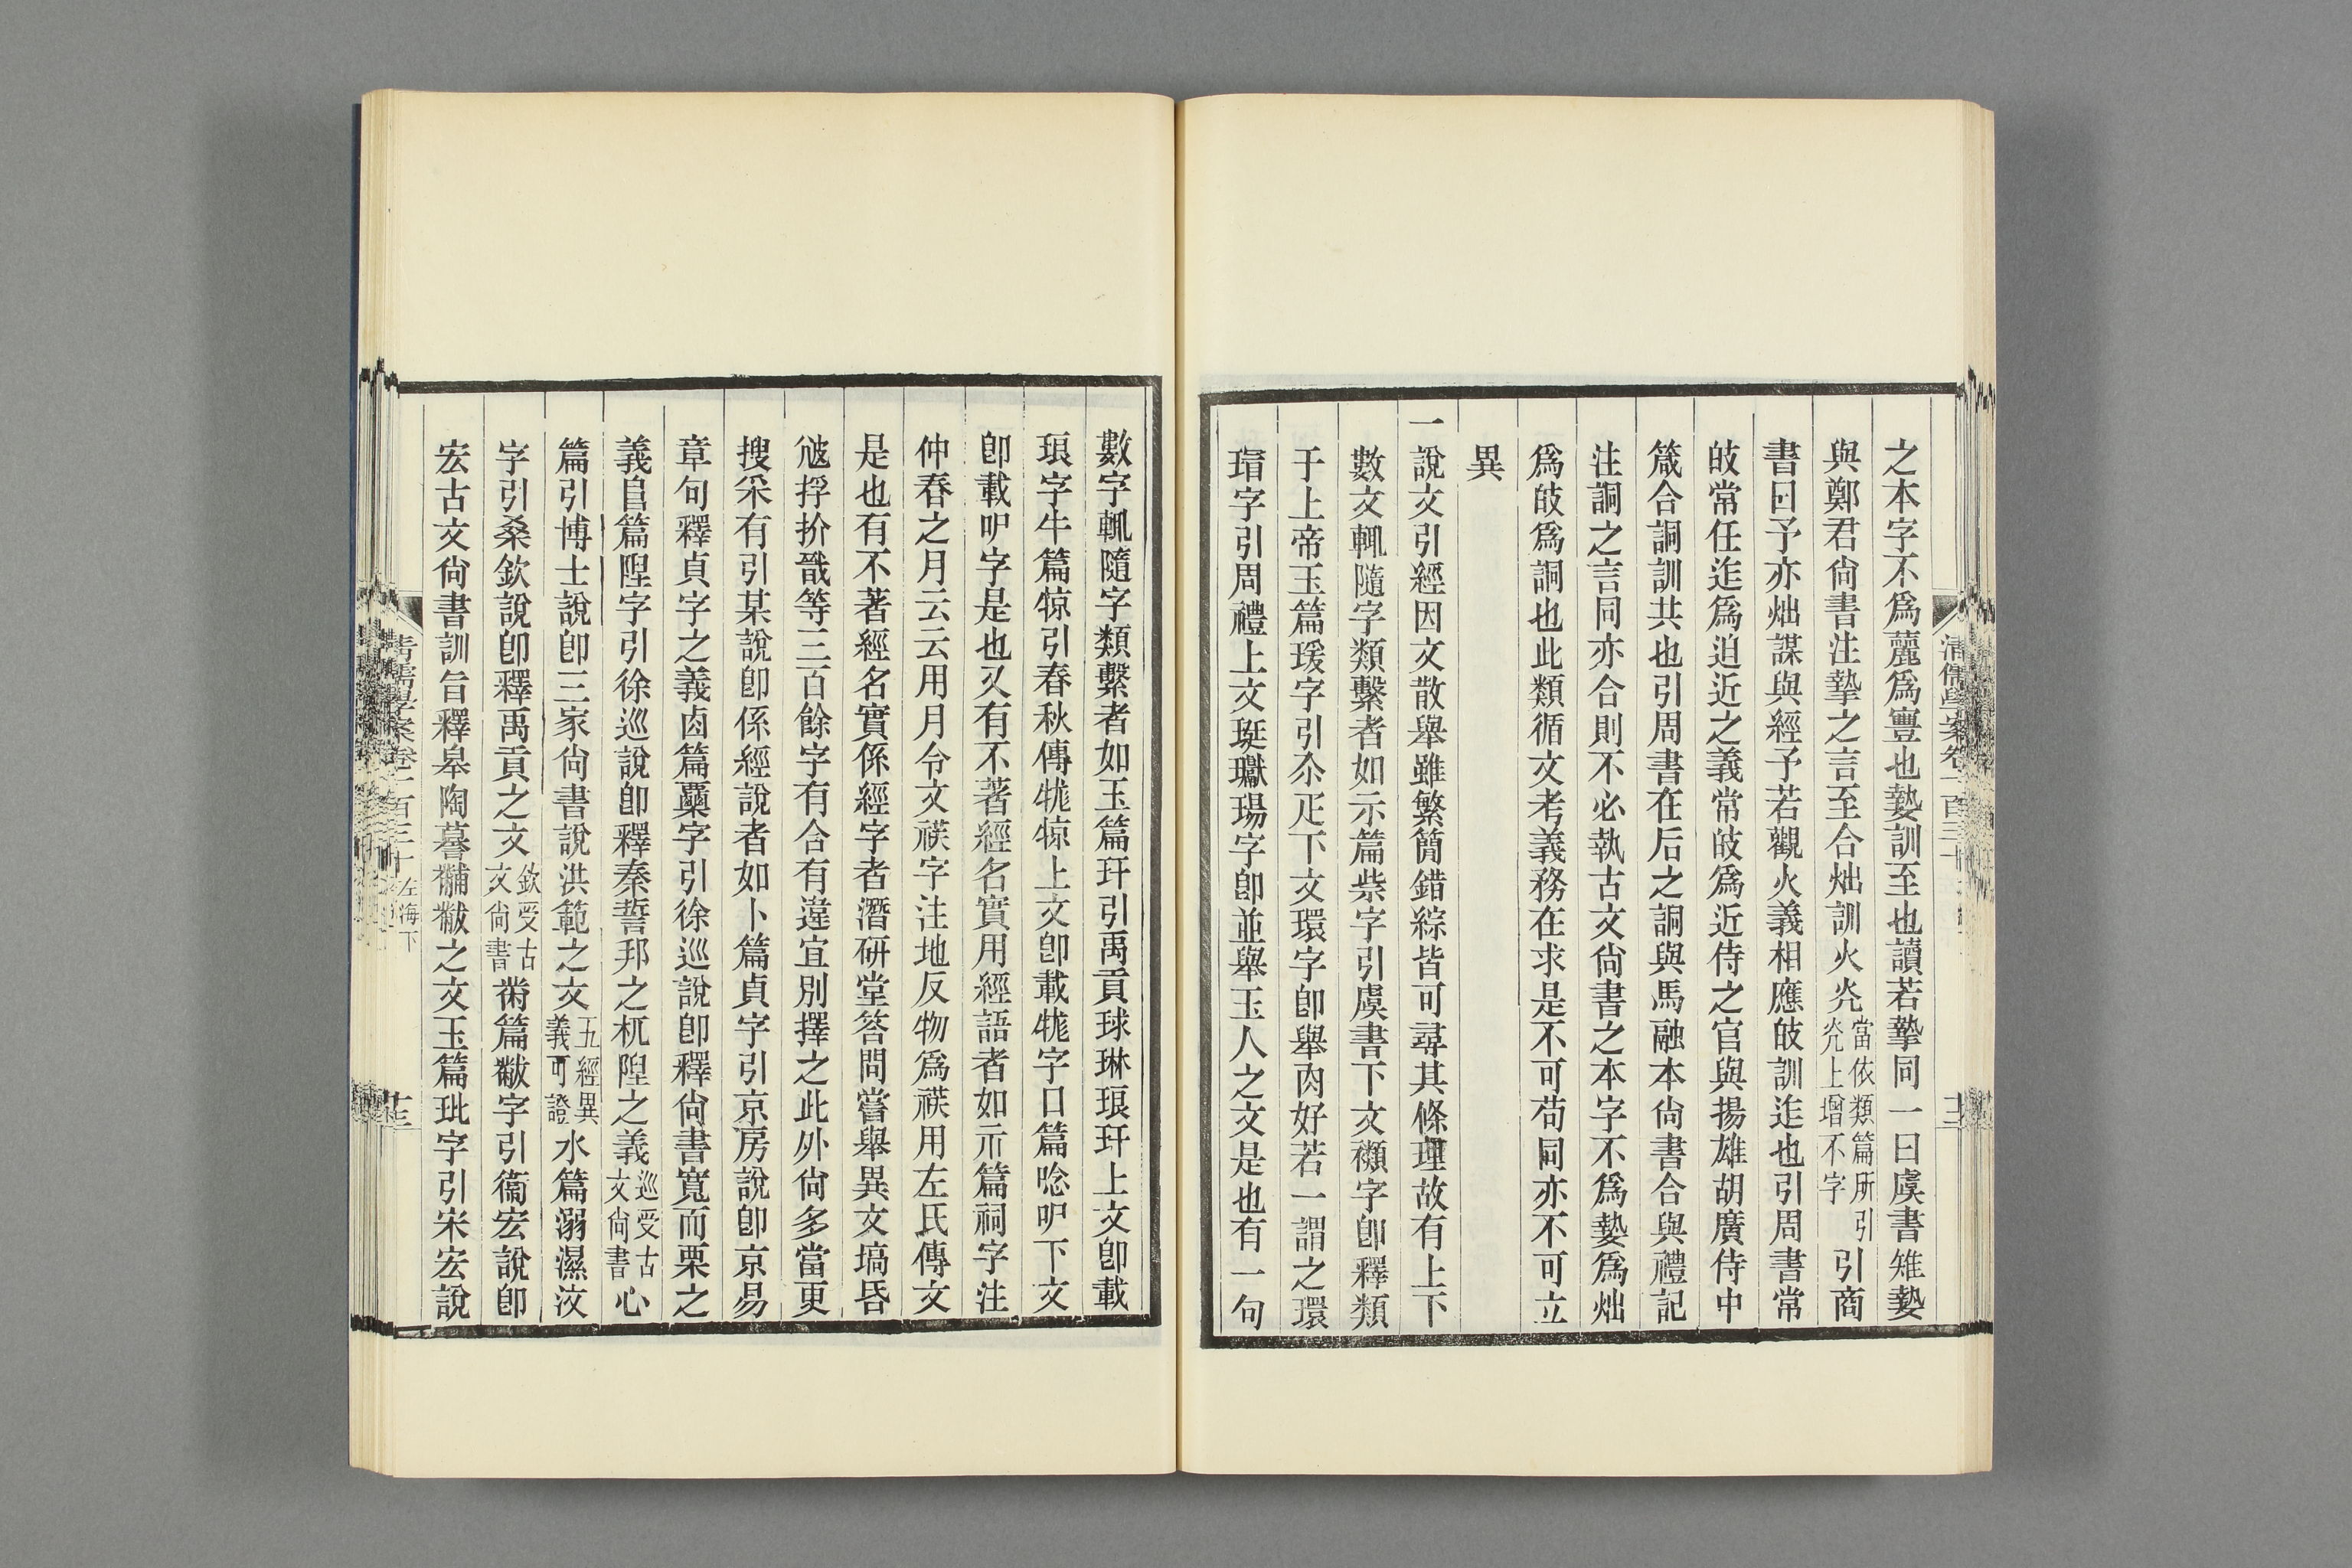 之本字不爲麓爲豐也㙯訓至也讀若摯同一曰虞書雉㙯
與鄭君尙書注摯之言至合炪訓火光當依類篇所引光上增不字引商
書曰予亦炪謀與經予若觀火義相應㪏訓迮也引周書常
㪏常任迮爲迫近之義常㪏爲近侍之官與揚雄胡廣侍中
箴合詷訓共也引周書在后之詷與馬融本尙書合與禮記
注詷之言同亦合則不必執古文尙書之本字不爲㙯爲炪
爲㪏爲詷也此類循文考義務在求是不可苟同亦不可立
異
一說文引經因文散舉雖繁簡錯綜皆可尋其條理故有上下
數文輒隨字類繫者如示篇祡字引虞書下文禷字卽釋類
于上帝玉篇瑗字引尒疋下文環字卽舉肉好若一謂之環
瑁字引周禮上文珽瓛瑒字卽並舉玉人之文是也有一句
數字輒隨字類繫者如玉篇玕引禹貢球琳琅玕上文卽載
琅字牛篇㹁引春秋傳牻㹁上文卽載牻字口篇唸吚下文
卽載吚字是也又有不著經名實用經語者如示篇祠字注
仲春之月云云用月令文䄏字注地反物爲䄏用左氏傳文
是也有不著經名實係經字者潛硏堂答問嘗舉異文塙昬
㩻捊扴戩等三百餘字有合有違宜別擇之此外尙多當更
搜采有引某說卽係經說者如卜篇貞字引京房說卽京易
章句釋貞字之義卤篇㮚字引徐巡說卽釋尙書寬而栗之
義𨸏篇隉字引徐巡說卽釋秦誓邦之杌隉之義巡受古文尙書心
篇引博士說卽三家尙書說洪範之文五經異義可證水篇溺濕汶
字引桑欽說卽釋禹貢之文欽受古文尙書黹篇黻字引衞宏說卽
宏古文尙書訓旨釋皋陶謩黼黻之文玉篇玭字引宋宏說
清儒學案卷一百三十
左海下
十三